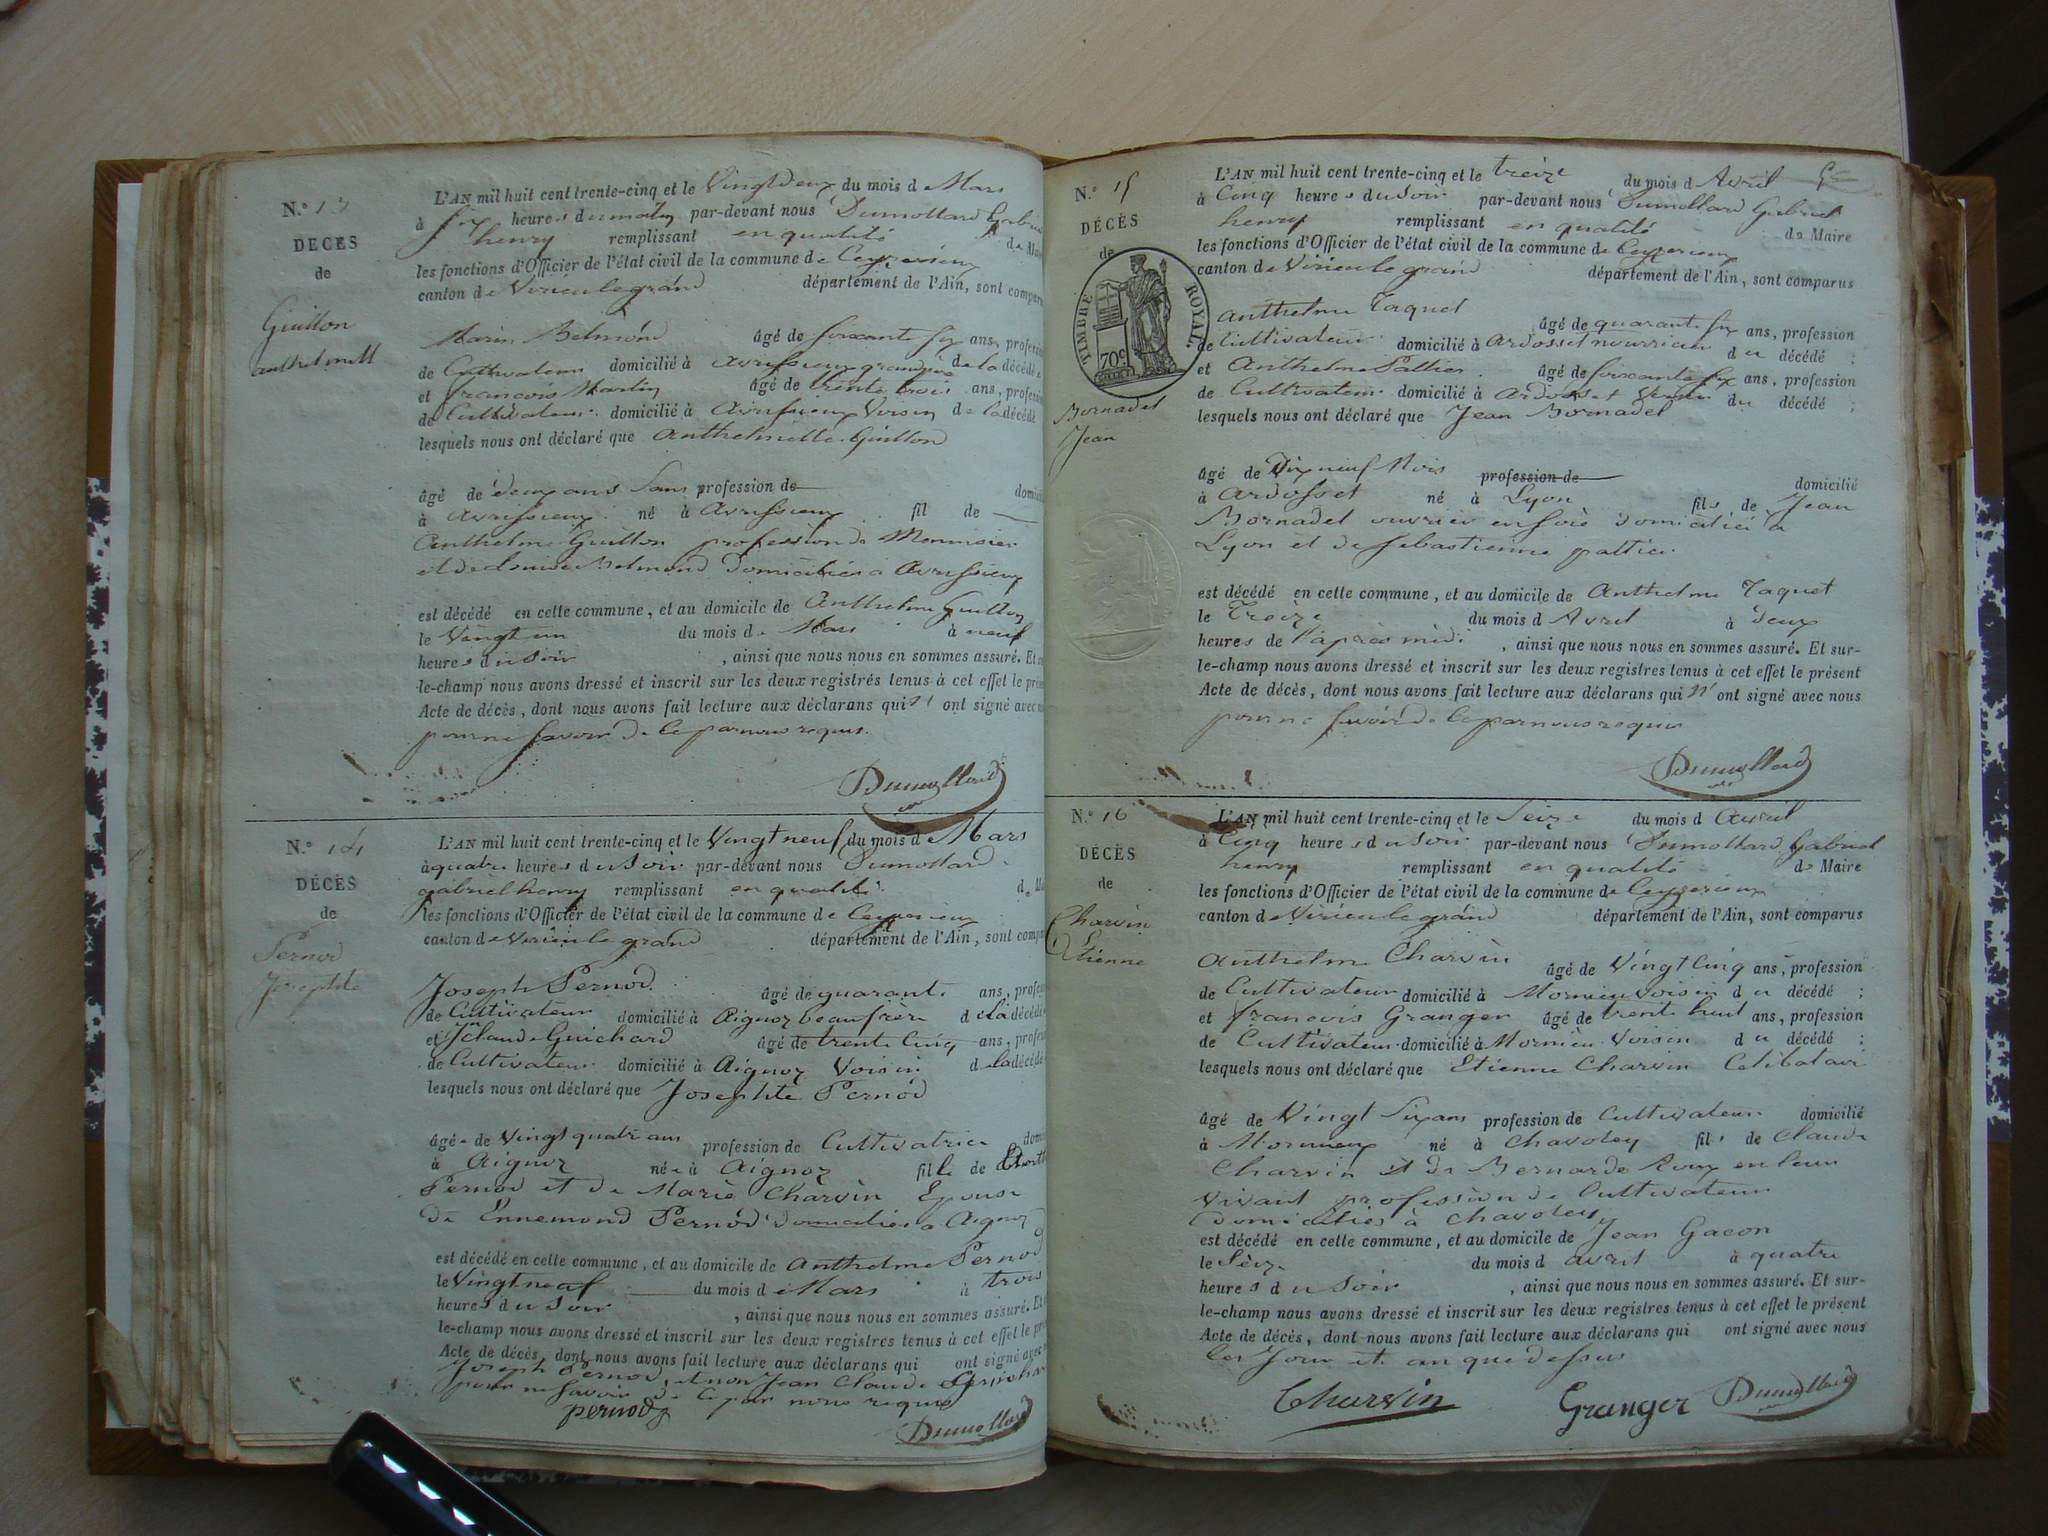 N.° 13
DÉCÈS
de
Guillon
anthelmett
L'AN mil huit cent trente-cinq et le Vingtdeux du mois d e Mars
à six heures du matin par-devant nous Dumollard Gabriel
henry remplissant en qualité de Mai
les fonctions d'Officier de l'état civil de la commune de Ceyzerieux
canton de Virieu le grand département de l'Ain, sont comparus
Marin Belmond âgé de soixante six ans, profession
de Cultivateur domicilié à avrissieux grandpère de la décédée
et francois Martin âgé de trente trois ans, profession
de Cultivateur domicilié à Avrissieux Voisin de la décédé
lesquels nous ont déclaré que anthelmette Guillon
âgé de deux ans Sans profession de domicilié
à avrissieux né à Avrissieux fil de
Anthelme Guillon profession de Menuisier
et de Louise Belmond Domiciliés a Avrissieux
est décédé en cette commune, et au domicile de Anthelme Guillon
le Vingt un du mois de Mars à neuf
heures du Soir , ainsi que nous nous en sommes assuré. Et sur
le-champ nous avons dressé et inscrit sur les deux registres tenus à cet effet le présent
Acte de décès, dont nous avons fait lecture aux déclarans qui n' ont signé avec nous
pour ne savoir de ce par nous requis.
Dumollard
N.° 14
DÉCÈS
de
Pernod
Josephte
L'AN mil huit cent trente-cinq et le Vingt neuf du mois d e Mars
à quatre heures du Soir par-devant nous Dumollard
gabriel henry remplissant en qualité de Mai
les fonctions d'Officier de l'état civil de la commune de Ceyzerieux
canton de Virieu le grand département de l'Ain, sont comparus
Joseph Pernod âgé de quarante ans, profession
de Cultivateur domicilié à Aignoz beaufrère de la décédée
et Jn Claude Guichard âgé de trente Cinq ans, profession
de Cultivateur domicilié à Aignoz Voisin de la décédé
lesquels nous ont déclaré que Josephte Pernod
âgé e de Vingt quatre ans profession de Cultivatrice domicilié
à Aignoz né e à Aignoz fille de
Pernod et de Marie Charvin Epouse
de Ennemond Pernod domiciliés a Aignoz
est décédé en cette commune, et au domicile de Anthelme Pernod
le Vingt neuf du mois d e Mars à trois
heures du Soir , ainsi que nous nous en sommes assuré. Et
le-champ nous avons dressé et inscrit sur les deux registres tenus à cet effet le présent
Acte de décès, dont nous avons fait lecture aux déclarans qui ont signé avec
Joseph Pernod, et non Jean Claude Guichard
pour ne savoir de ce par nous requis
pernod
Dumollard
N.° 15
DÉCÈS
de
TIMBRE ROYAL.
70c
Bornadel
Jean
L'AN mil huit cent trente-cinq et le treize du mois d Avril
à Cinq heures du Soir par-devant nous Dumollard Gabriel
henry remplissant en qualité de Maire
les fonctions d'Officier de l'état civil de la commune de Ceyzerieux
canton de Virieu le grand département de l'Ain, sont comparus
Anthelme Taquet âgé de quarante six ans, profession
de Cultivateur domicilié à Ardosset nourricier du décédé ;
et Anthelme Pallier âgé de soixante six ans, profession
de Cultivateur domicilié à Ardosset Voisin du décédé ;
lesquels nous ont déclaré que Jean Bornadel
âgé de Dix neuf Mois profession de domicilié
à Ardosset né à Lyon fils de Jean
Bornadel ouvrier en soie domicilié a
Lyon et de Sebastienne
est décédé en cette commune, et au domicile de Anthelme Taquet
le Treize du mois d Avril à deux
heures de l'après midi , ainsi que nous nous en sommes assuré. Et sur-
le-champ nous avons dressé et inscrit sur les deux registres tenus à cet effet le présent
Acte de décès, dont nous avons fait lecture aux déclarans qui n' ont signé avec nous
pour ne savoir de ce par nous requis
Dumollard
N.° 16
DÉCÈS
de
Charvin
Etienne
L'AN mil huit cent trente-cinq et le Seize du mois d avril
à Cinq heures du Soir par-devant nous Dumollard Gabriel
henry remplissant en qualité de Maire
les fonctions d'Officier de l'état civil de la commune de Ceyzerieux
canton de Virieu le grand département de l'Ain, sont comparus
Anthelme Charvin âgé de Vingt Cinq ans, profession
de Cultivateur domicilié à Mornieu Voisin du décédé ;
et francois Granger âgé de trente huit ans, profession
de Cultivateur domicilié à Mornieu Voisin du décédé ;
lesquels nous ont déclaré que Etienne Charvin Celibataire
âgé de Vingt Six ans profession de Cultivateur domicilié
à Mornieux né à Chavoley fils de Claude
Charvin et de Bernarde Roux en leur
vivant profession de Cultivateur
Domiciliés à Chavoley
est décédé en cette commune, et au domicile de Jean Gacon
le Seize du mois d avril à quatre
heures du Soir , ainsi que nous nous en sommes assuré. Et sur-
le-champ nous avons dressé et inscrit sur les deux registres tenus à cet effet le présent
Acte de décès, dont nous avons fait lecture aux déclarans qui ont signé avec nous
les Jour et an que dessus
Charvin Granger Dumollard